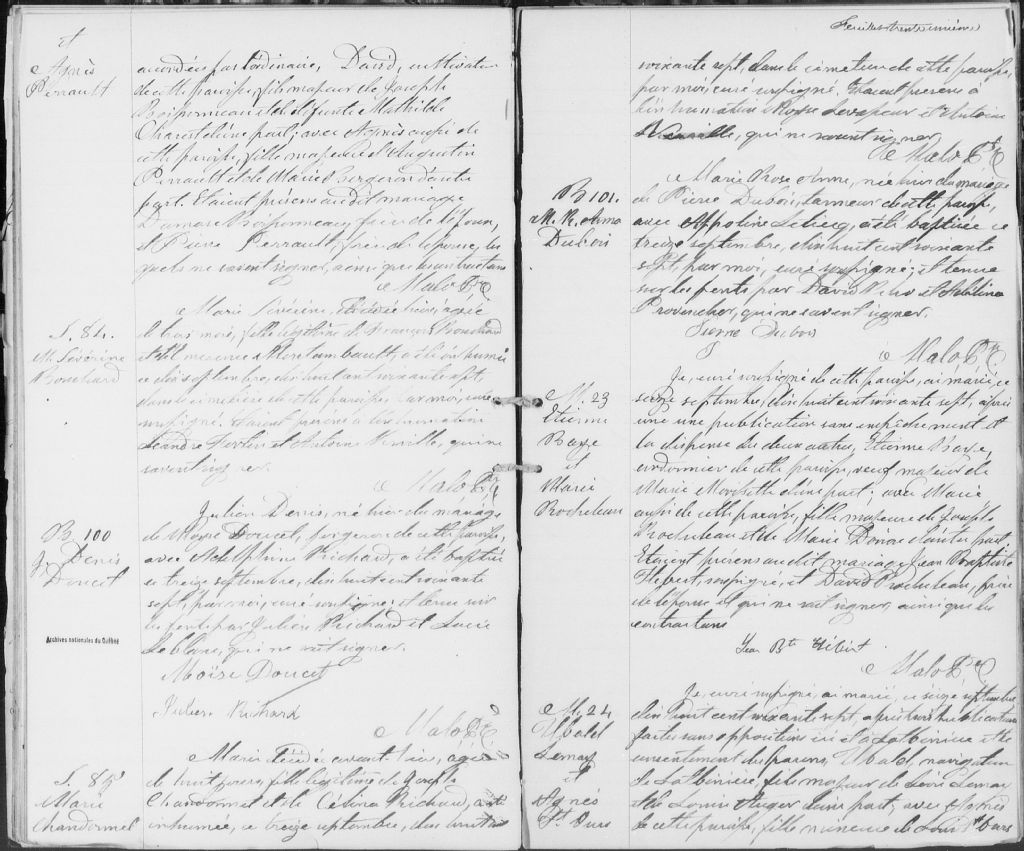 et
Agnès
Perrault
accordée par l'ordinaire, David, cultivateur
de cette paroisse, fils majeur de Joseph
Boisjonneau et de défunte Mathilde
Charest d'une part; avec Agnès aussi de
cette paroisse, fille majeure d'Augustin
Perrault et de Marie Bergeron d'autre
part. Etaient présens au dit mariage
Damase frère de l'époux,
et Pierre Perrault, frère de l'épouse, les
quels ne savent signer, ainsi que les contractans
Malo Ptre
S. 84.
M. Séverine
Bouchard
Marie Séverine, décédée hier, agée
de trois mois, fille légitime de François Bouchard
et de Montambault, a été inhumée
ce dix septembre, dix huit cent soixante sept,
dans le cimetière de cette paroisse, par moi, curé
soussigné. Etaient présens à l'inhumation
Léandre et Antoine qui ne
savent signer.
Malo Ptre
B 100
J. Denis
Doucet
Julien Denis, né hier du mariage
de Moyse Doucet, forgeron de cette paroisse,
avec Adelphine Richard, a été baptisé
ce treize septembre, dix huit cent soixante
sept, par moi, curé soussigné; et tenu sur
les fonts par Julien Richard et Lucie
Leblanc, qui ne sait signer.
Moïse Doucet
Julien Richard
Malo Ptre
Archives nationales du Québec
S. 85
Marie
Chandonnet
Marie décédée avant-hier, agée
de huit jours, fille légitime de Joseph
Chandonnet et de Célina Richard, a été
inhumée, ce treize septembre, dix huit cent
Feuillet trente unième
soixante sept, dans le cimetière de cette paroisse,
par moi, curé soussigné. Etaient présens à
l'inhumation Moyse Levasseur et Antoine
qui ne savent signer.
Malo Ptre
B 101.
M. R. Anna
Dubois
Marie Rose Anna, née hier du mariage
de Pierre Dubois, tanneur de cette paroisse,
avec Appoline Leclerc, a été baptisée ce
treize septembre, dix huit cent soixante
sept, par moi, curé soussigné; et tenue
sur les fonts par David et Adelina
Provencher, qui ne savent signer.
Pierre Dubois
Malo Ptre
M. 23
Etienne
et
Marie
Rocheleau
Je, curé soussigné de cette paroisse, ai marié, ce
seize septembre, dix huit cent soixante sept, après
une publication sans empêchement et
la dispense des deux autres, Etienne
cordonnier de cette paroisse, veuf majeur de
Marie d'une part; avec Marie
aussi de cette paroisse, fille majeure de Joseph
Rocheleau et de Marie d'autre part
Etaient présens au dit mariage Jean Baptiste
Hébert, soussigné, et David Rocheleau, frère
de l'épouse et qui ne sait signer, ainsi que les
contractans
Jean Bte Hébert
Malo Ptre
M. 24
Ubald
Lemay
et
Agnès
St. Ours
Je, curé soussigné, ai marié, ce seize septembre
dix huit cent soixante sept, après trois publications
faites sans opposition ici et à Lotbinière et le
consentement des parens, Ubald, navigateur
de Lotbinière, fils majeur de Léon Lemay
et de Louise Auger d'une part, avec Agnès
de cette paroisse, fille mineure de Louis St Ours